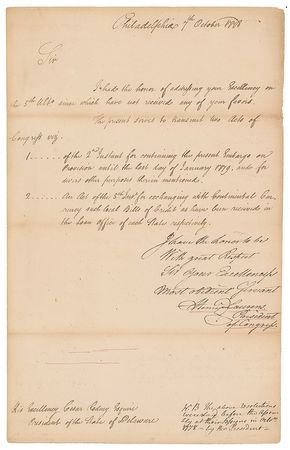 Philadelphia 7th October 1778
Sir
I had the honor of addressing your Excellency on
the 5th since which have not received any of your favors.
The present serves to transmit two Acts of
Congress viz
1 ...... of the 2d Instant for continuing the present Embargo on
Provision until the last day of January 1779, and for
divers other purposes therein mentioned.
2 ...... An Act of the 5th Inst for exchanging with Continental Cur-
rency such local Bills of Credit as have been received in
the Loan Office of each State respectively.
I have the honor to be
With great Respect
Sir Your Excellency's
Most obedient Servant
Henry Laurens
President
of Congress.
His Excellency Cesar Rodney Esquire
President of the State of Delaware
NB The above resolutions
were before the Assem
bly at their in Octobr
1778 — by the President —